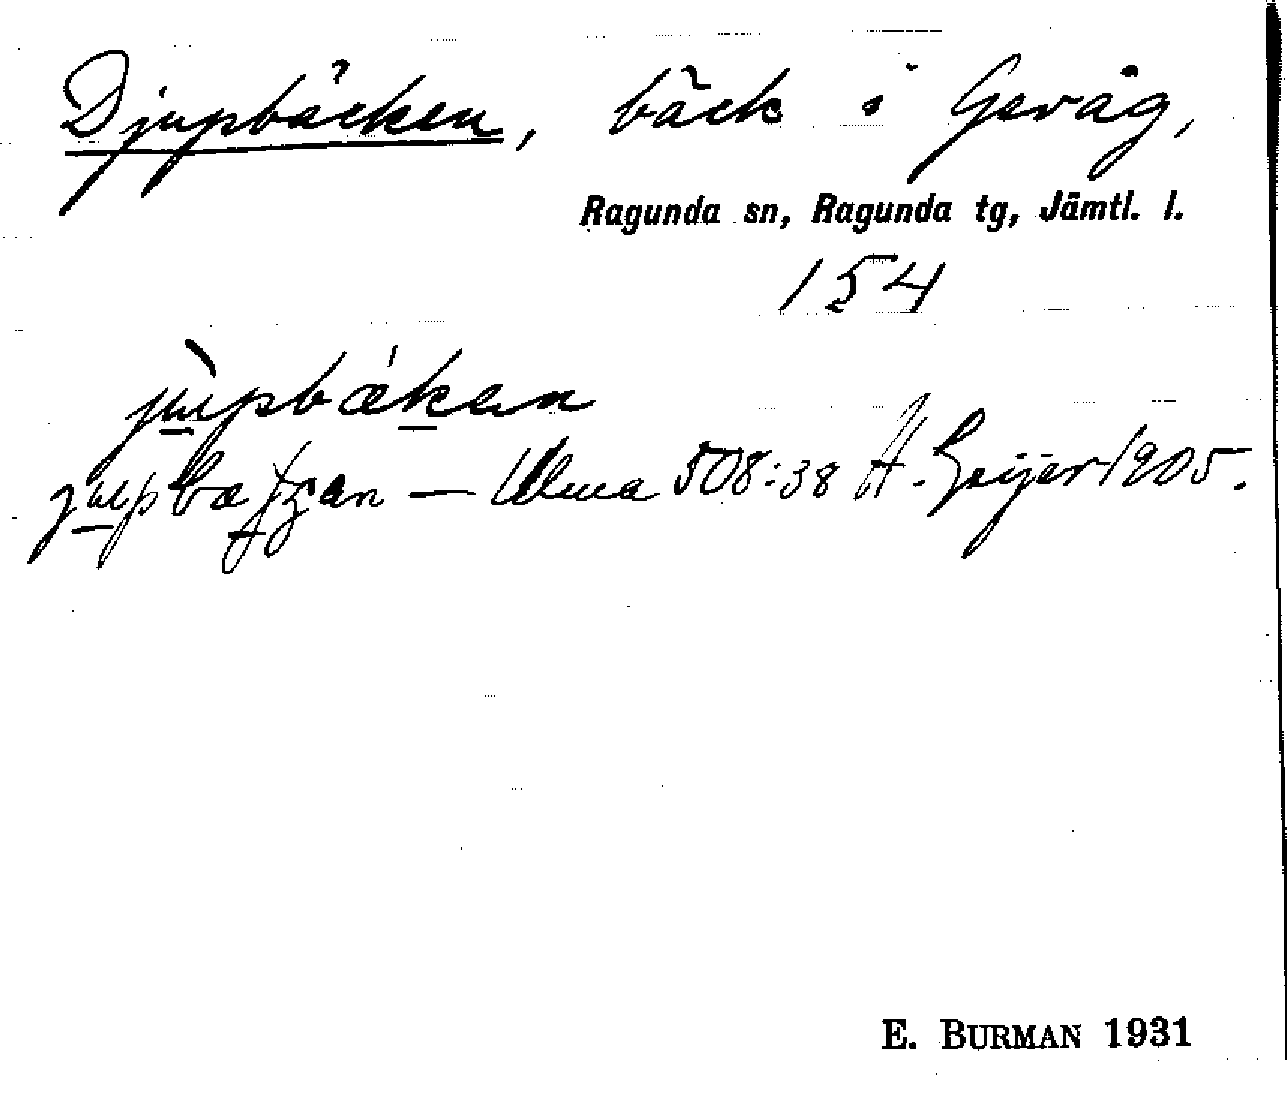 Djupbäcken, bäck i Gevåg,
Ragunda sn, Ragunda tg, Jämtl. l.
154
jùpbǽkan
— Ulma 508:38 H. Geijer 1905.
E. BURMAN 1931